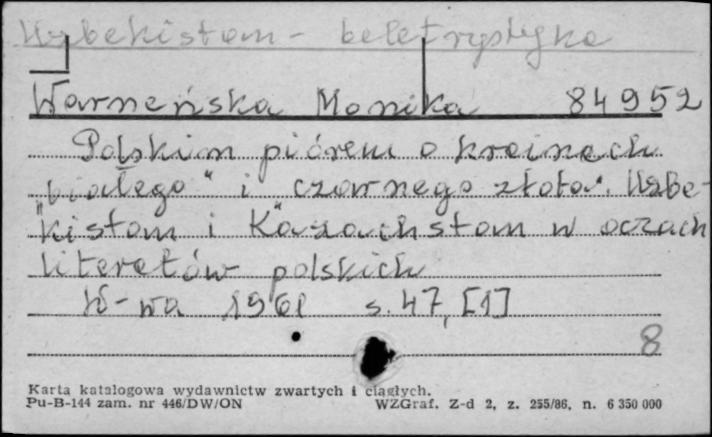 Uzbekistan - beletrystyka
Warneńska Monika 84952
Polskim piórem o krainach
"białego" i "czarnego złota". Uzbe-
kistan i Kazachstan w oczach
literatów polskich
W-wa 1961 s. 47, [1]
8
Karta katalogowa wydawnictw zwartych i ciągłych.
Pu-B-144 zam. nr 446/DW/ON WZGraf. Z-d 2, z. 255/86, n. 6 350 000